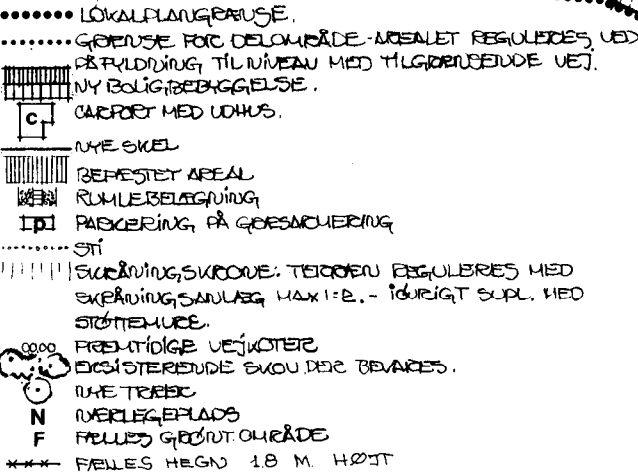 LOKALPLANGRÆNSE.
GRÆNSE FOR DELOMRÅDE - AREALET REGULERES VED
PÅFYLDNING TIL NIVEAU MED TILGRÆNSENDE VEJ.
NY BOLIGBEBYGGELSE.
C CARPORT MED UDHUS.
NYE SKEL
BEFÆSTET AREAL
RUMLEBELÆGNING
P PARKERING PÅ GRÆSARMERING
STI
SKRÅNINGSKRONE. TERRÆN REGULERES MED
SKRÅNINGSANLÆG MAX 1:2. - IØVRIGT SUPL. MED
STØTTEMURE.
00.00 FREMTIDIGE VEJKOTER
EKSISTERENDE SKOV DER BEVARES.
NYE TRÆER
N NÆRLEGEPLADS
F FÆLLES GRØNT OMRÅDE
FÆLLES HEGN 1.8 M. HØJT